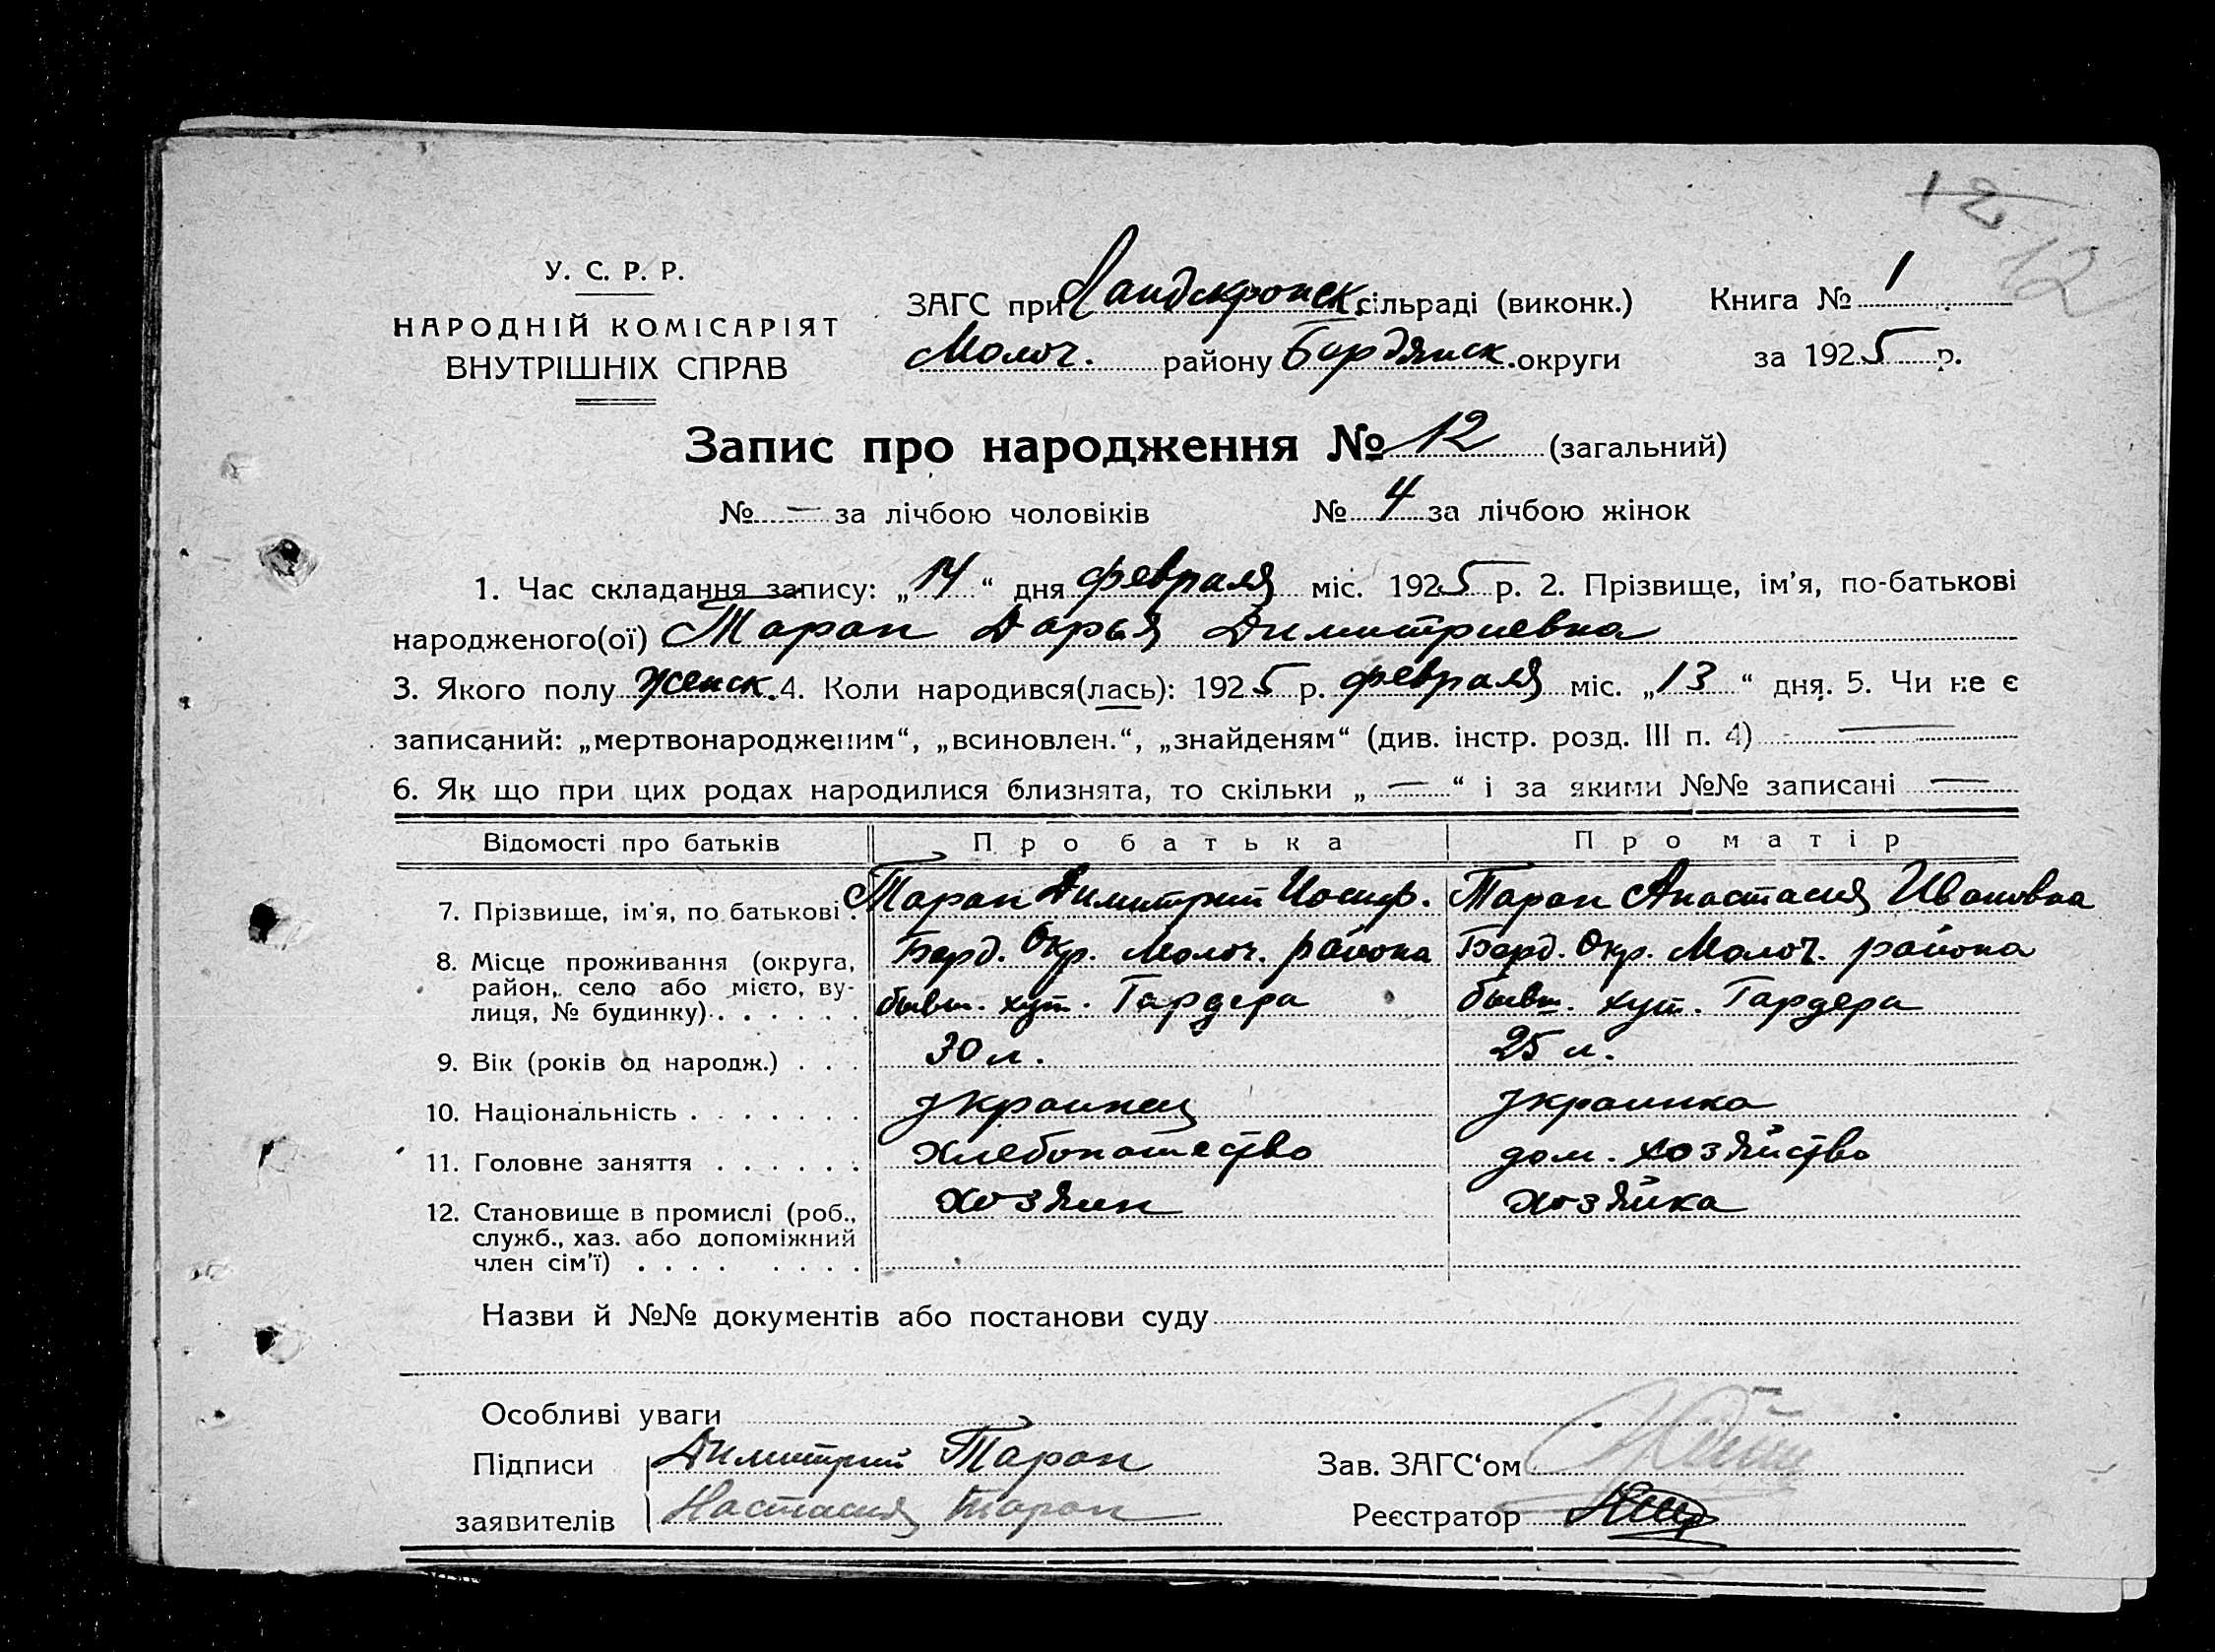 12
12
У. С. Р. Р.
НАРОДНІЙ КОМІСАРІЯТ
ВНУТРІШНІХ СПРАВ
ЗАГС при Ландскронск. сільраді (виконк.)
Молоч. району Бердянск. округи
Книга № 1
за 1925 р.
Запис про народження № 12 (загальний)
№ — за лічбою чоловіків № 4 за лічбою жінок
1. Час складання запису: „14“ дня февраля міс. 1925 р. 2. Прізвище, ім'я, по-батькові
народженого(ої) Таран Дарья Димитриевна
3. Якого полу женск. 4. Коли народився(лась): 1925 р. февраля міс. „13“ дня. 5. Чи не є
записаний: „мертвонародженим“, „всиновлен.“, „знайденям“ (див. інстр. розд. III п. 4) —
6. Як що при цих родах народилися близнята, то скільки „ — “ і за якими №№ записані —
Відомості про батьків Про батька Про матір
7. Прізвище, ім'я, по батькові . Таран Димитрий Иосиф. Таран Анастасия Ивановна
8. Місце проживання (округа, Берд. Окр. Молоч. района Берд. Окр. Молоч. района
район, село або місто, ву-
лиця, № будинку) . . . . . . бывш. хут. Гардера бывш. хут. Гардера
9. Вік (років од народж.) . . . 30 л. 25 л.
10. Національність . . . . . . . украинец украинка
11. Головне заняття . . . . . . хлебопашество дом. хозяйство
12. Становище в промислі (роб., хозяин хозяйка
служб., хаз. або допоміжний
член сім'ї) . . . . . . . .
Назви й №№ документів або постанови суду
Особливі уваги
Підписи Димитрий Таран Зав. ЗАГС‘ом
заявителів Настасия Таран Реєстратор